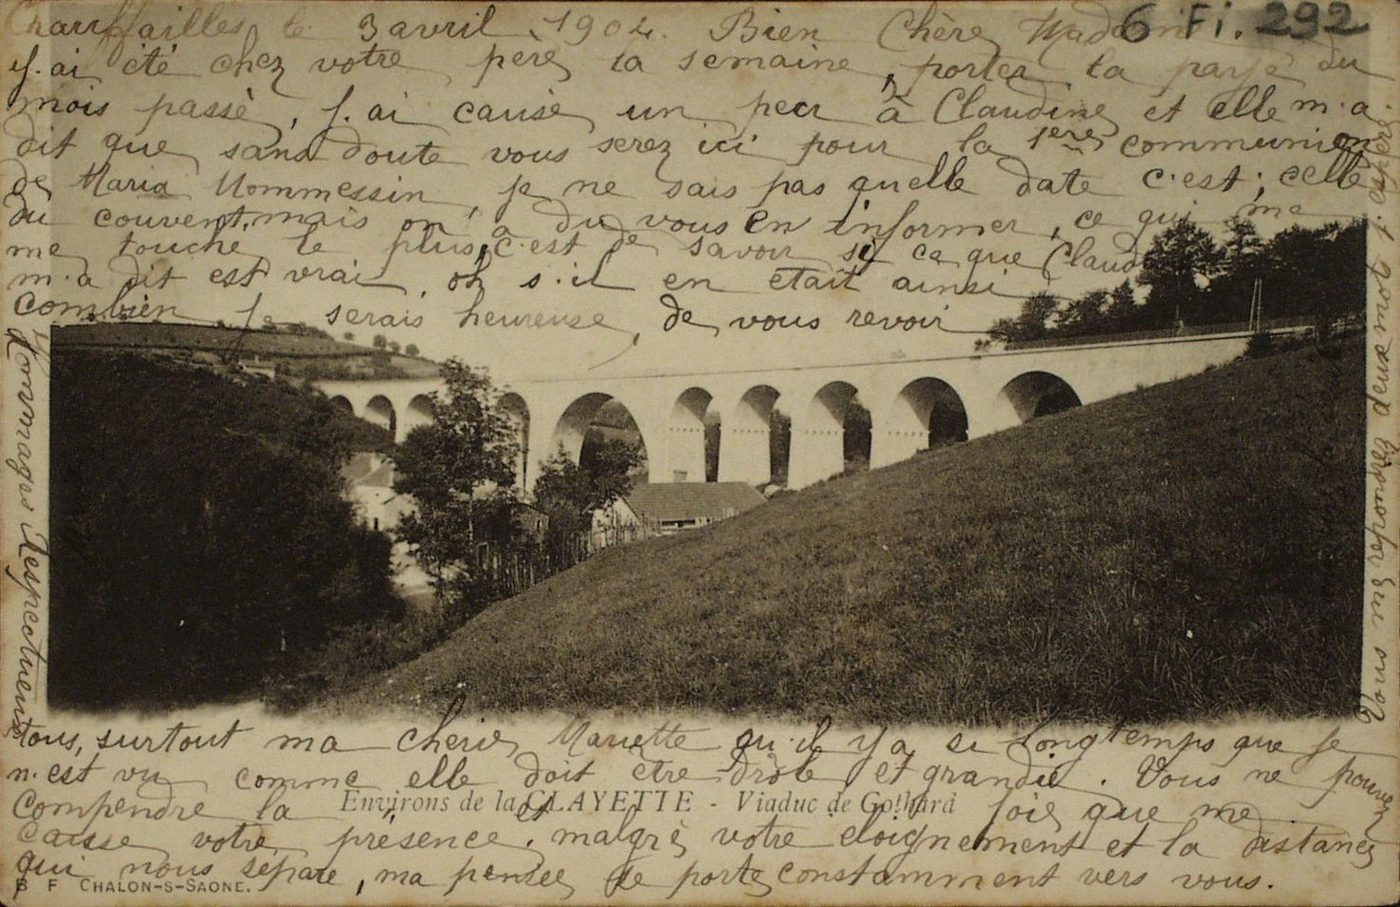 Chauffailles le 3 avril 1904. Bien Chère Madame
6 Fi. 292
J.ai été chez votre père, la semaine, porter la paye du
mois passé, J.ai causé un peu à Claudine et elle m.a
dit que sans doute vous serez ici pour la 1ère communion
de Maria Mommessin, je ne sais pas quelle date c.est; celle
du couvent, mais on a du vous en informer, ce qui me
me touche le plus, c.est de savoir si ce que Claud
m.a dit est vrai. oh s.il en etait ainsi
combien je serais heureuse, de vous revoir
tous, surtout ma cherie Mariette qu.il y a si longtemps que je
n.est vu comme elle doit etre drôle et grandie. Vous ne pouvez
compendre la et joie que me
Environs de la CLAYETTE - Viaduc de Gothard
causse votre présence. malgré votre eloignement et la distance
qui nous sépare, ma pensée se porte constamment vers vous.
B F CHALON-S-SAONE.
Hommages Respectueux
Vous me repondrez deux mots j.espère.